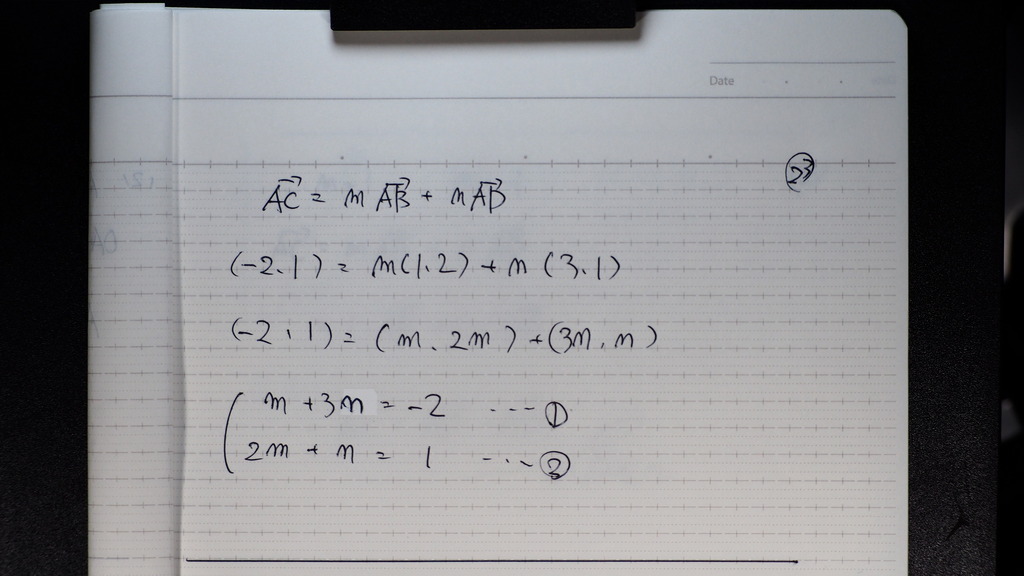 Date
㉓
AC→ = m AB→ + n AD→
(-2, 1) = m(1, 2) + n (3, 1)
(-2, 1) = (m, 2m) + (3n, n)
m + 3n = -2 ... ①
2m + n = 1 ... ②